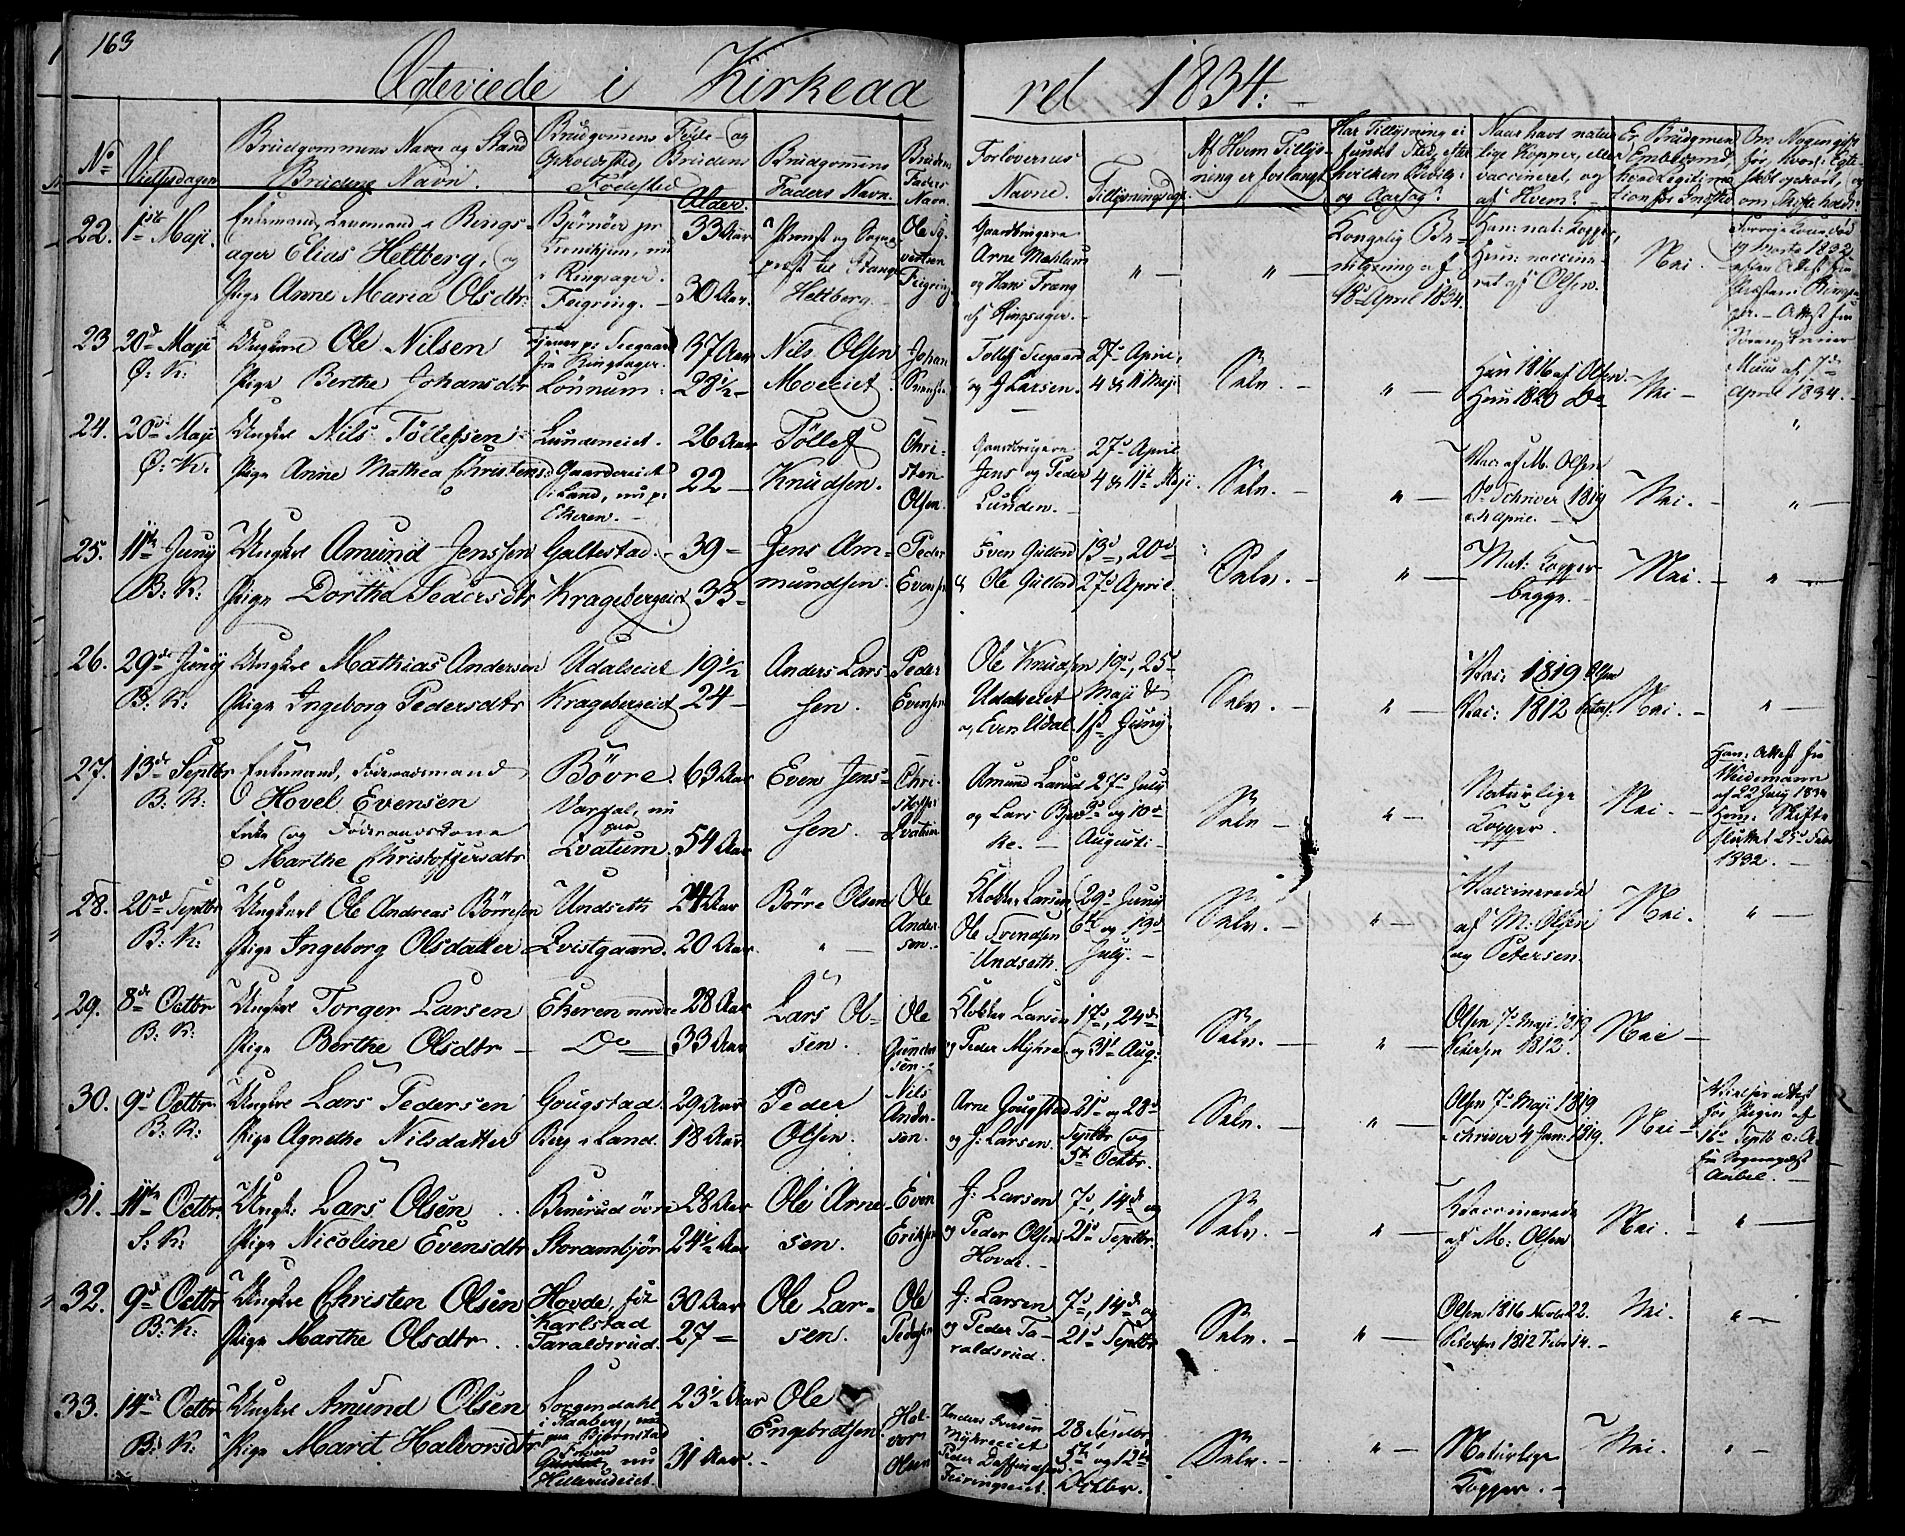 163
Ægteviede i Kirkeaaret 1834.
No
Vielsesdagen
Brudgommens Navn og Stand
Brudens Navn.
Brudgomens Føde- og
Opholdsted, Brudens
Fødested
Alder.
Brudgommens
Faders Navn.
Brudens
Faders
Navn.
Forlovernes
Navne.
Tillysningsdage.
Af Hvem Tillys-
ning er forlangt
Har Tillysning ei
fundet Sted, efter
hvilken Bevilg:
og Aarsag?
Naar havt natur
lige Kopper, eller
vaccineret, og
af Hvem?
Er Brudgommen
22. 1ste Maji. Enkemand, Lensmand i Rings-
ager Elias Heltberg, og
Pige Anne Maria Olsdtr.
Bjørnør pr
Trondhjem, nu
i Ringsager.
Feigring.
33 Aar
30 Aar.
Provst og Sogne-
præst til Stange
Heltberg
Ole
Feigring
Gaardbrugere
Arne Mæhlum
og Hans Trang
af Ringsager.
"
"
Kongelig Be-
vilgning af
18de April 1834.
Han: nat: Kopper,
Hun: vaccine-
ret af Olsen.
Nei.
23 20de Maji Ungkarl Ole Nilsen
Ø: K: Pige Berthe Johansdtr
fra Ringsager.
Lønnum.
37 Aar
28½
Nils Olsen
Moeeiet
Johan
Tollef Seegaard
og J Larsen.
27de April,
4 & 11te Maji
Selv.
"
Han 1816 af Olsen.
Hun 1820 Do
Nei
April 1834.
24. 20de Maji Ungkarl Nils Tollefsen
Ø: K: Pige Anne Mathea Christens:
Lundeneiet.
Gaardereiet
i Land, nu p:
Ekeren.
26 Aar
22
Tollef
Knudsen.
Chri-
sten
Olsen
Gaardbrugere
Jens og Peder
Lunden.
27de April
4 & 11te Maji.
Selv.
"
Vac: af M. Olsen
Do Schriver 1819
Nei.
"
25. 11te Juny Ungkarl Amund Jenssen
B: K: Pige Dorthe Pedersdtr
Galtestad.
Krageberg eiet
39
33
Jens Am-
mundsen.
Peder
Evensen
Even Gullord
& Ole Gullord
13de, 20de
27de April
Selv.
"
Nat: Kopper
begge.
Nei.
"
26. 29de Juny Ungkarl Mathias Andersen
B: K: Pige Ingeborg Pedersdtr
Udalseiet
Krageberg eiet
19½
24
Anders Lars-
sen.
Peder
Evensen
Ole Knudsen
Udalseiet
og Even Udal.
19de, 25de
Maji &
1ste Juny.
Selv.
"
Vac: 1819 Olsen
Vac: 1812
Nei.
"
27. 13de Septbr Enkemand, Føderaadsmand
B: K: Hovel Evensen
Enke og Føderaadskone
Marthe Christophersdtr
Bøvre
Vardal, nu
paa
Qvatum.
63 Aar
54 Aar
Even Jens-
sen.
Chri-
stopher
Qvatum
Amund Larud
og Lars Bjer-
ke.
27de July
3de og 10de
Augusti
Selv
"
Naturlige
Kopper.
Nei.
Han: Attest fra
Weidemann
af 22 July 1834
Hun: Skifte
sluttet 25de Febr
1832.
28. 20de Septbr Ungkarl Ole Andreas Børresen
B: K: Pige Ingeborg Olsdatter
Undseth
Qvistgaard.
24 Aar
20 Aar
Børre Olsen
"
Ole
Ander-
sen.
Klokker Larsen
Ole Svendsen
Undseth.
29de Junii
6te og 19de
July.
Selv.
"
Vaccinerede
af M: Olsen
og Petersen.
Nei.
"
29. 8de Octbr Ungkarl Torger Larsen
B: K: Pige Berthe Olsdtr
Ekeren nordre
Do
28 Aar
33 Aar
Lars Ol-
sen.
Ole
Gunder-
sen.
Klokker Larsen
og Peder Myhre
17de, 24de
og 31te Aug:
Selv.
"
Olsen 7de Maji 1819
Pedersen 1812.
Nei
30. 9de Octbr Ungkarl Lars Pedersen
B: K: Pige Agnethe Nilsdatter
Gougstad.
Berg i Land.
29 Aar
18 Aar
Peder
Olsen.
Nils
Ander-
sen.
Arne Gougstad
og J: Larsen.
21de og 28de
Septbr og
5te Octbr.
Selv.
"
Olsen 7de Maji 1819
Schriver 4 Jan: 1819.
Nei
31. 11te Octbr. Ungk: Lars Olsen
S: K: Pige Nicoline Evensdtr
Benterud øvre
Storambjør
28 Aar
24½ Aar
Ole Arne-
sen.
Even
Eriksen
J: Larsen
og Peder Olsen
Hovde.
7de, 14de og
21de Septbr.
Selv.
"
Vaccinerede
af M: Olsen
Nei.
"
32. 9de Octbr Ungkarl Christen Olsen
B: K: Pige Marthe Olsdtr.
Hovde,føt
Karlstad
Taraldsrud.
30 Aar
27
Ole Lar-
sen.
Ole
Pedersen
J: Larsen
og Peder Ta-
raldsrud.
7de, 14de og
21de Septbr
Selv.
"
Olsen 1816 Novbr 22.
Pedersen 1812 Febr 14.
Nei.
"
33. 14de Octbr Ungkarl Amund Olsen
B: K: Pige Marit Halvorsdtr
Sorgendahl
i Faaberg, nu
paa Bjørnstad
nu
Hellerudeiet.
23½ Aar
31 Aar.
Ole
Engebretsen
Hal-
vor
Olsen
Anders Iversen
Myhreeiet
Peder
Feiringeiet.
28 Septbr,
5te og 12te
Octbr.
Selv.
"
Naturlige
Kopper.
Nei.
"